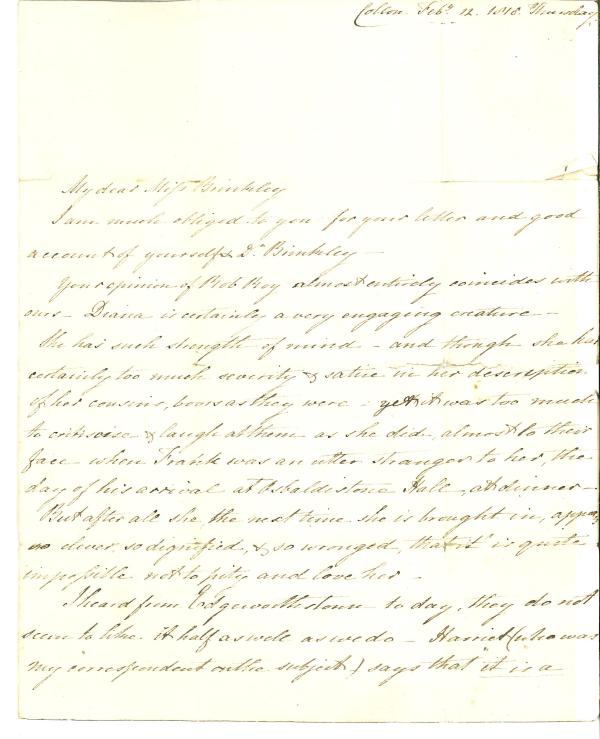 Collon Feby. 12. 1818. Thursday
My dear Miss Brinkley
I am much obliged to you for your letter and good
account of yourself & Dr. Brinkley —
Your opinion of Rob Roy almost entirely coincides with
ours — Diana is certainly a very engaging creature —
She has such strength of mind — and though she has
certainly too much severity & satire in her description
of her cousins, boors as they were — yet it was too much
to criticise & laugh at them as she did, almost to their
face when Frank was an utter stranger to her, the
day of his arrival at Osbaldistone Hall, at dinner —
But after all she, the next time she is brought in, appears
so clever, so dignified, & so wronged, that it is quite
impossible not to pity and love her —
I heard from Edgeworthstown to day, they do not
seem to like it half as well as we do — Harriet (who was
my correspondent on the subject) says that "it is a